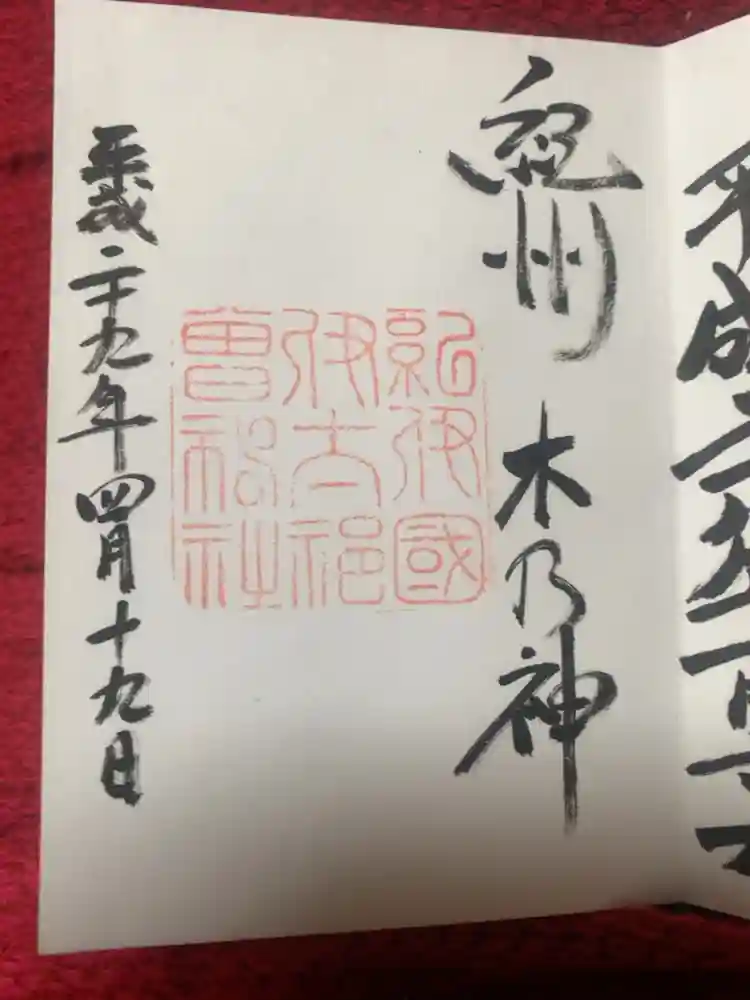 平成二
紀州 木乃神
紀伊國
伊太祁
曽神社
平成二十九年四月十九日